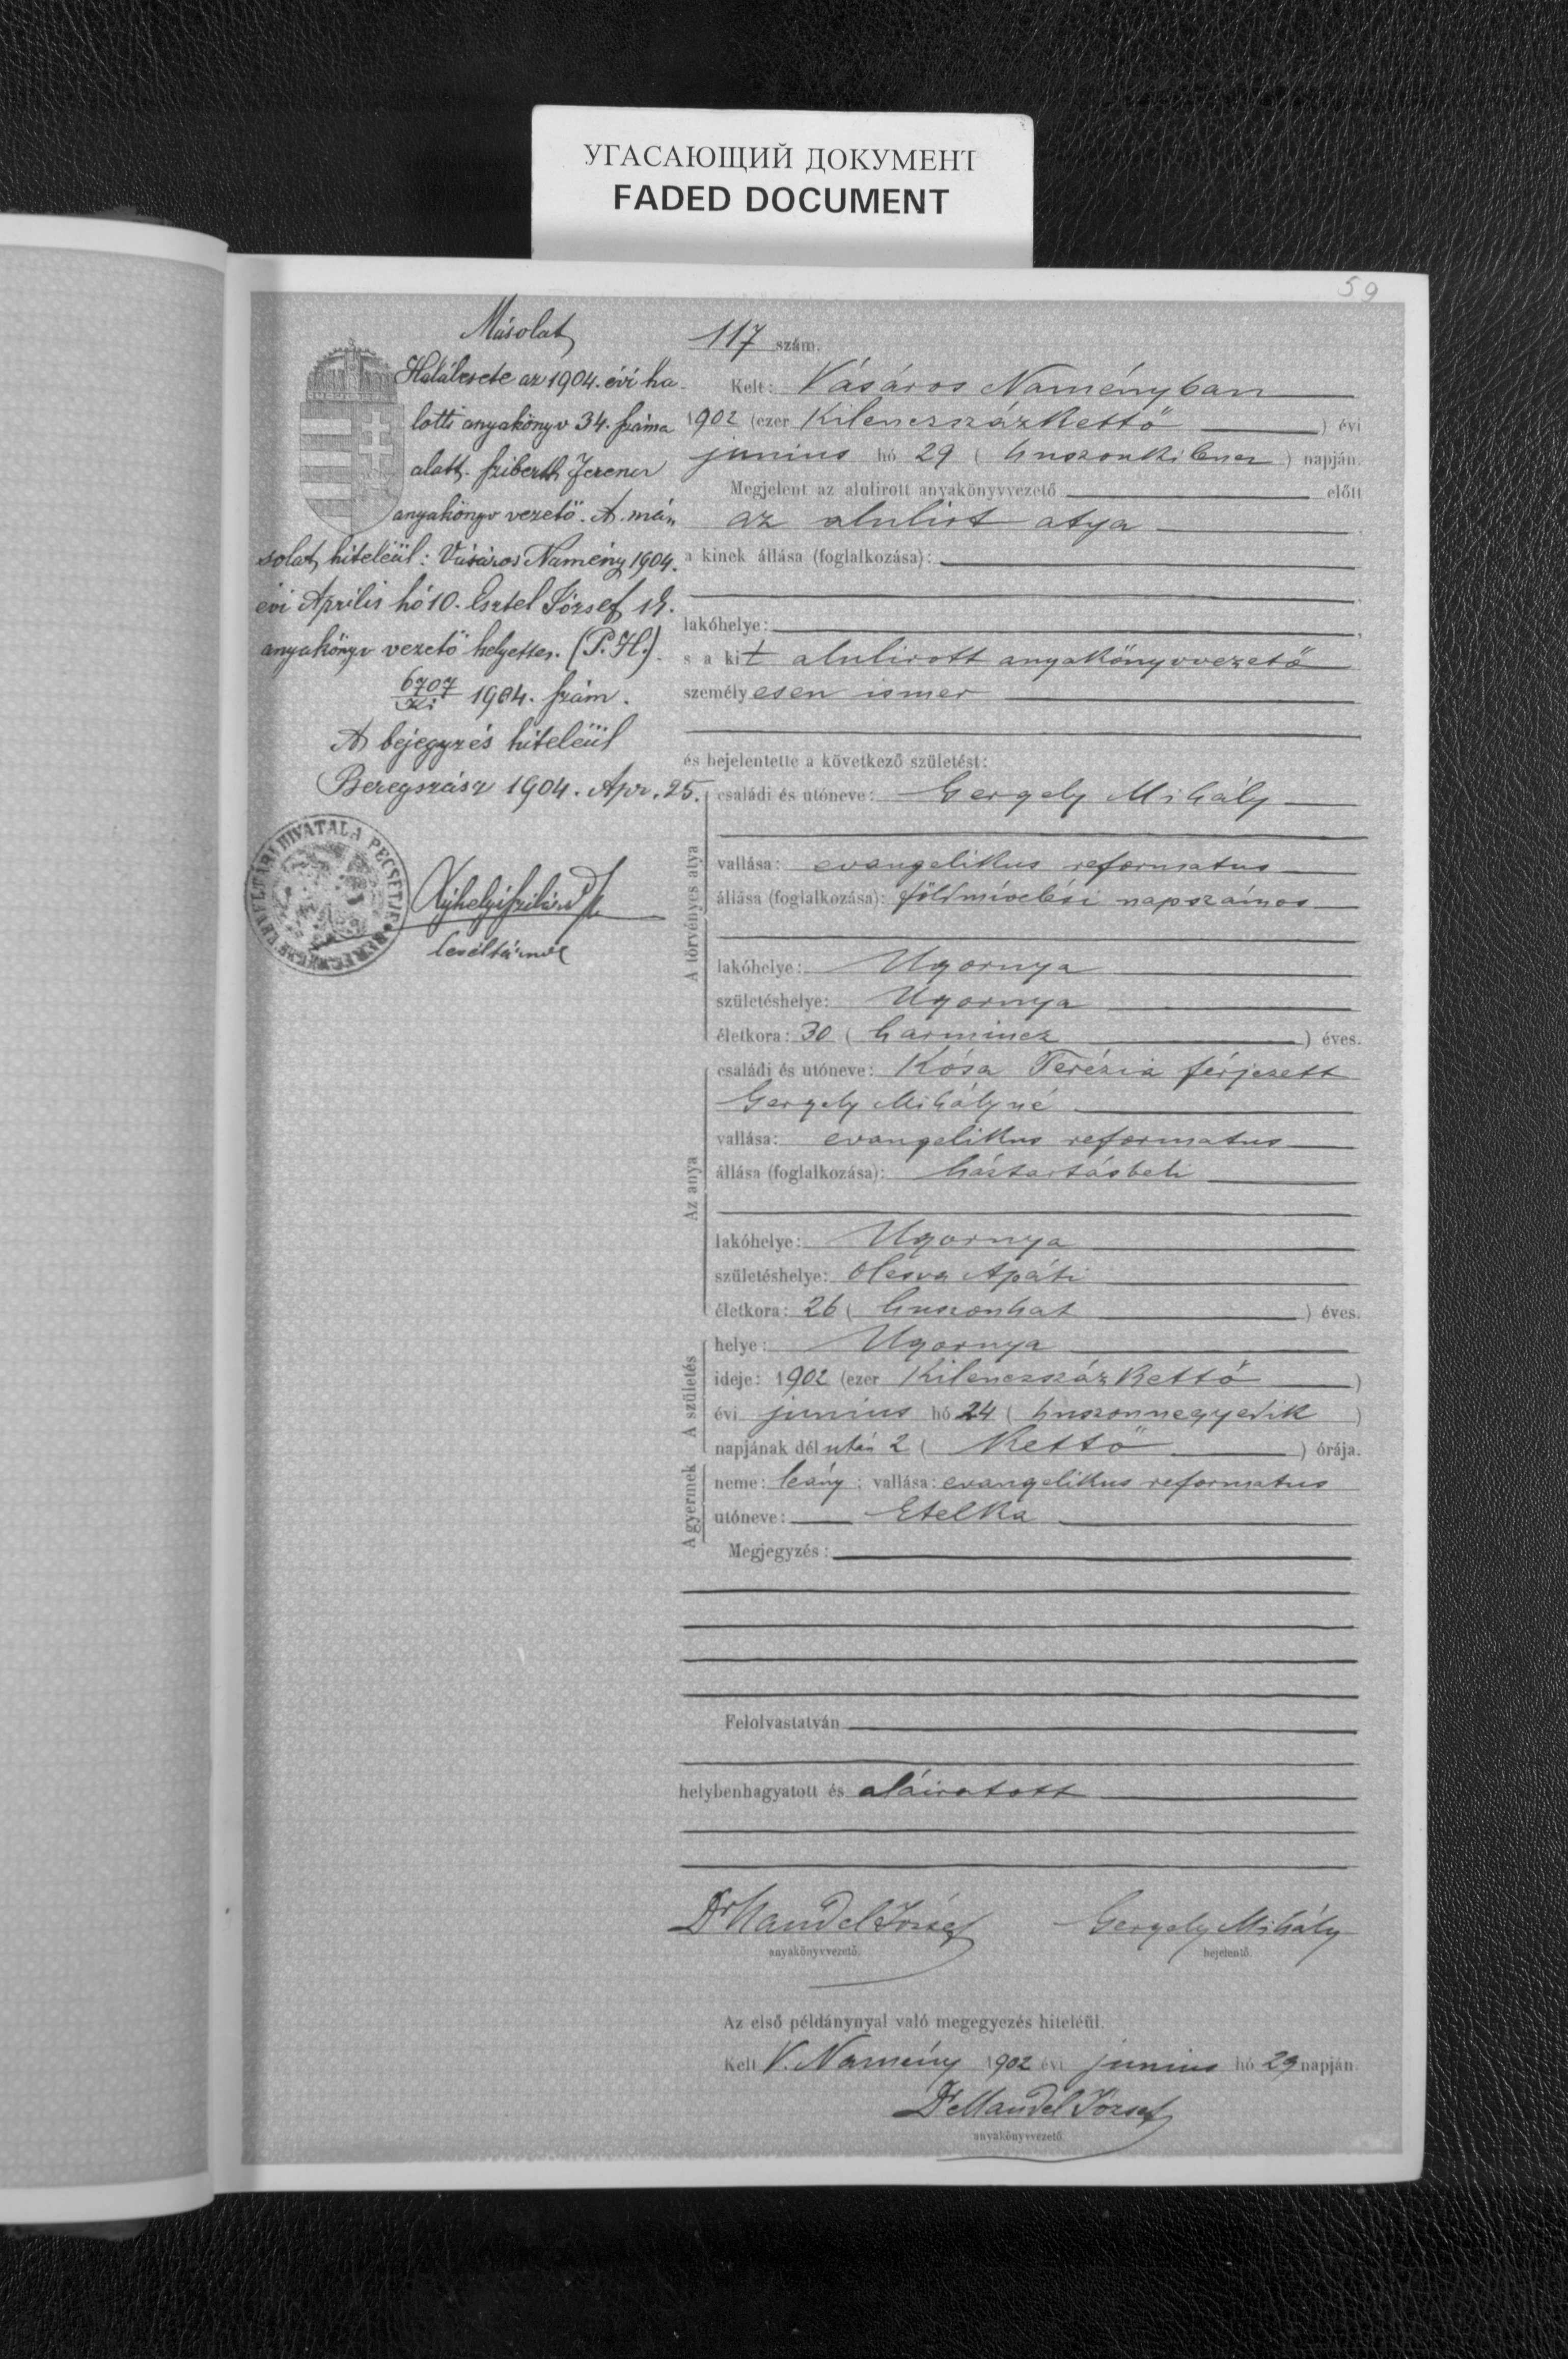 УГАСАЮЩИЙ ДОКУМЕНТ
FADED DOCUMENT
59
Másolat
Halálesete az 1904. évi ha-
lotti anyakönyv 34. száma
alatt. Sziberth Ferencz
anyakönyv vezető. A má-
solat hiteléül: Vásáros Namény 1904.
évi Április hó 10. Esztel József sk.
anyakönyv vezető helyettes. (P. H.)
6707/Ki 1904. szám.
A bejegyzés hiteléül
Beregszász 1904. Apr. 25.
levéltárnok
117 szám.
Kelt: Vásáros Naményban
1902 (ezer Kilenczszázkettő) évi
junius hó 29 (huszonkilencz) napján.
Megjelent az alulirott anyakönyvvezető előtt
az alulirt atya
a kinek állása (foglalkozása):
lakóhelye:
s a kit alulirott anyakönyvvezető
személyesen ismer
és bejelentette a következő születést:
A törvényes atya
családi és utóneve: Gergely Mihály
vallása: evangelikus reformatus
állása (foglalkozása): földmívelési napszámos
lakóhelye: Ugornya
születéshelye: Ugornya
életkora: 30 (harmincz) éves.
Az anya
családi és utóneve: Kósa Terézia férjezett
Gergely Mihályné
vallása: evangelikus reformatus
állása (foglalkozása): háztartásbeli
lakóhelye: Ugornya
születéshelye: Olcsva Apáti
életkora: 26 (huszonhat) éves.
A születés
helye: Ugornya
ideje: 1902 (ezer Kilenczszázkettő)
évi junius hó 24 (huszonnegyedik)
napjának délután 2 (Kettő) órája.
A gyermek
neme: leány; vallása: evangelikus reformatus
utóneve: Etelka
Megjegyzés:
Felolvastatván
helybenhagyatott és aláiratott
Dr Mandel József Gergely Mihály
anyakönyvvezető. bejelentő.
Az első példánynyal való megegyezés hiteléül.
Kelt V. Namény 1902 évi junius hó 29 napján.
Dr Mandel József
anyakönyvvezető.